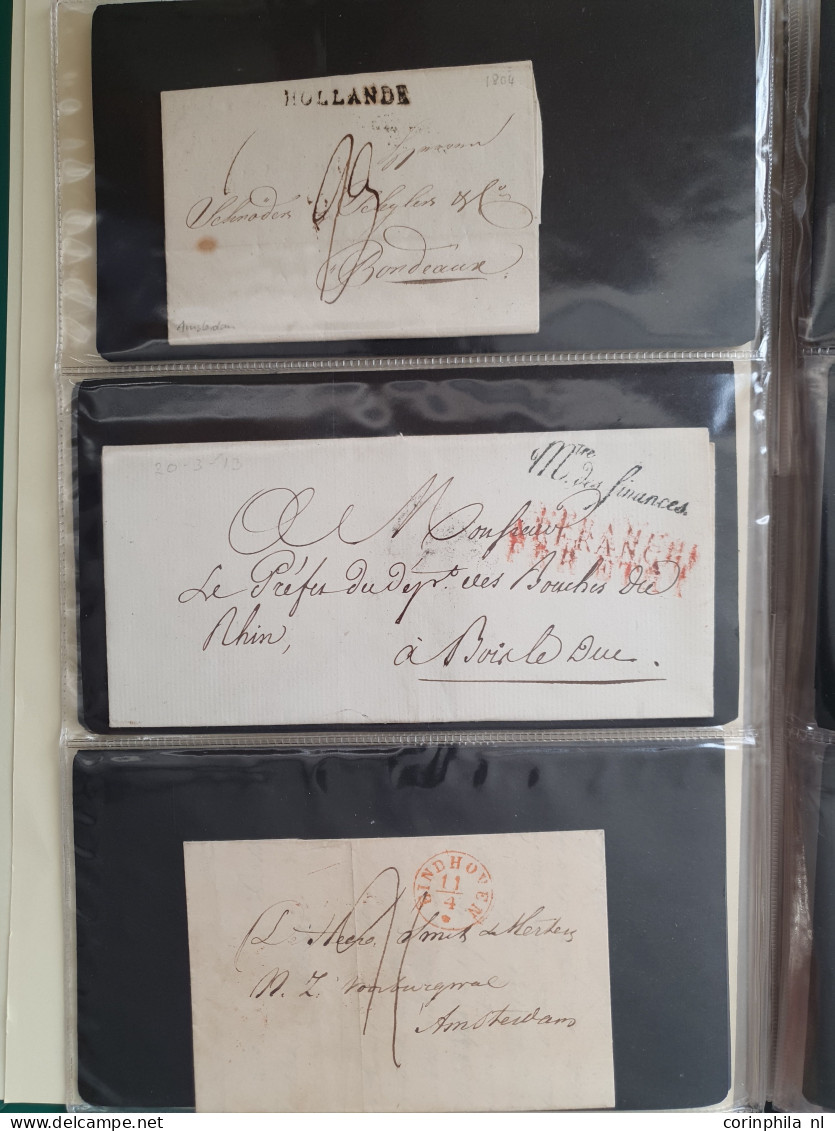 HOLLANDE
1804
Schröder & Schylers & Co
Bordeaux
Amsterdam
20-3-13
Mtre. des finances.
AFFRANCHI
PAR ETAT
A Monsieur
Le Préfet du Dépt. des Bouches du
Rhin,
à Bois le Duc.
EINDHOVEN
11
4
De Heer Smits de Mertens
N. Z. Voorburgwal
Amsterdam
corinphila nl